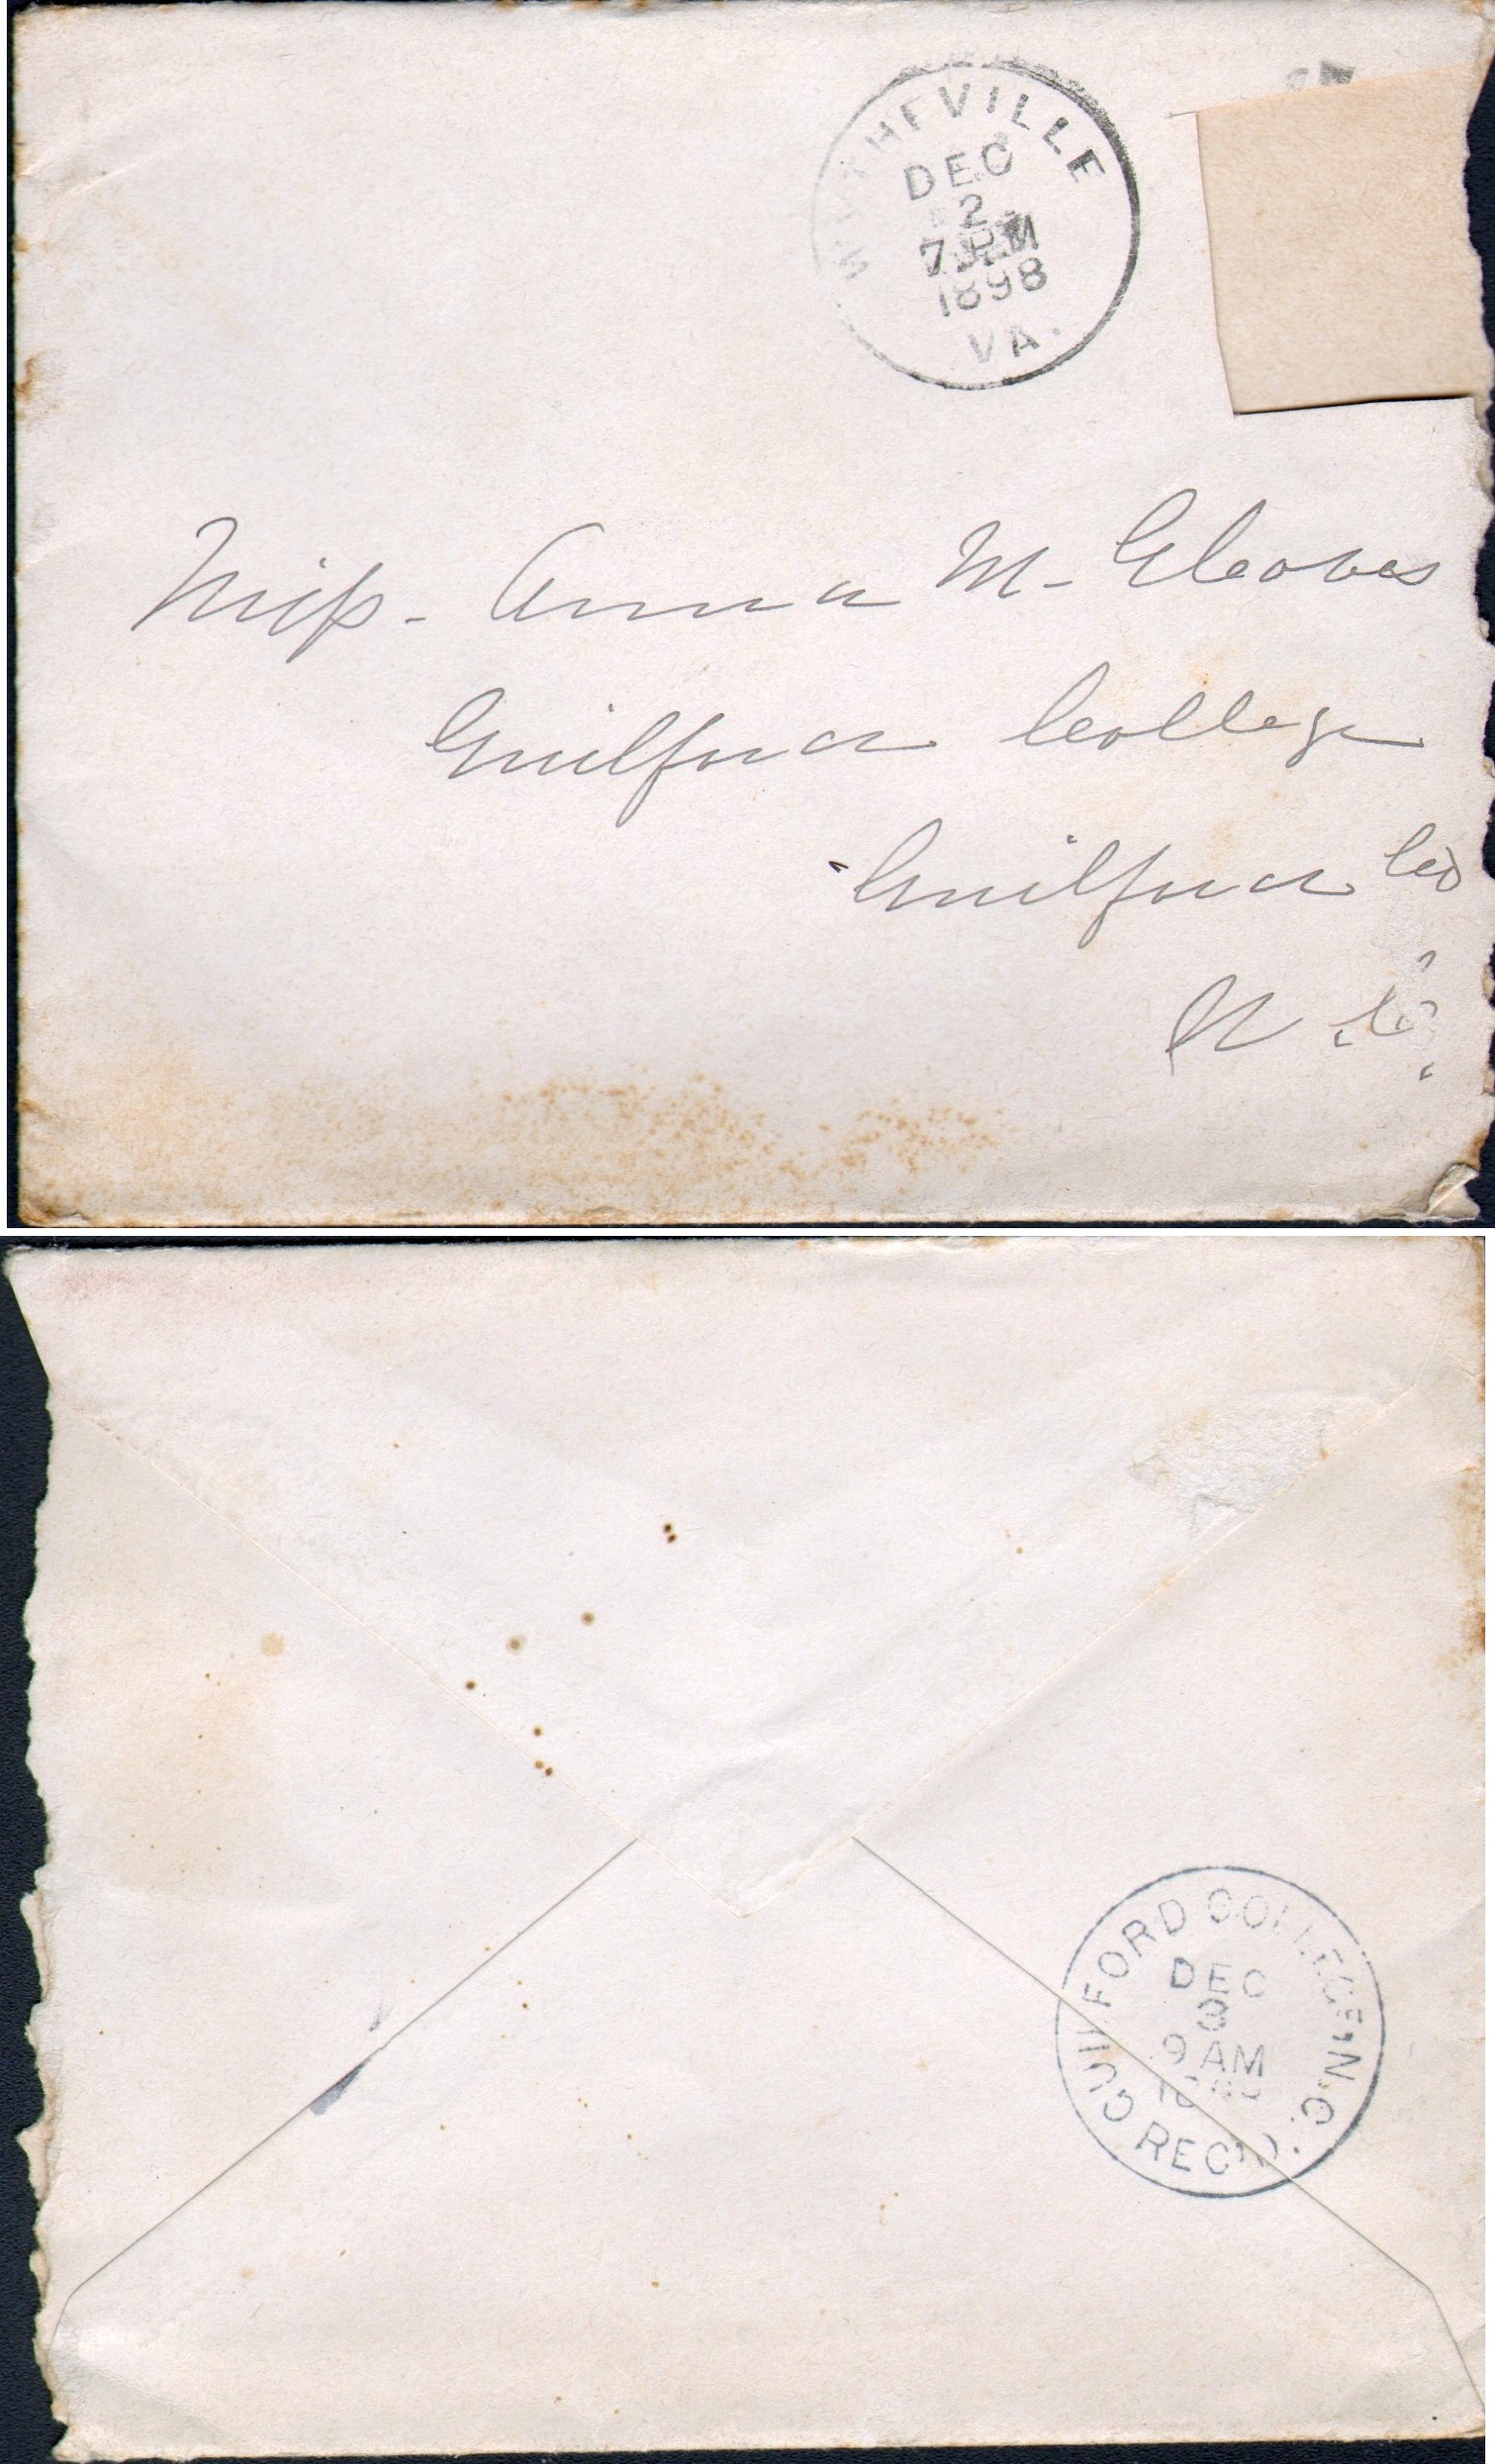 WYTHEVILLE
DEC
2
7 PM
1898
VA.
Miss. Anna M. Gleaves
Guilford College
Guilford Co
N. C.
GUILFORD COLLEGE, N.C.
DEC
3
9 AM
1898
REC'D.